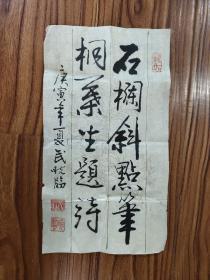 石欄斜點筆
桐葉坐題詩
庚寅年夏武牧臨